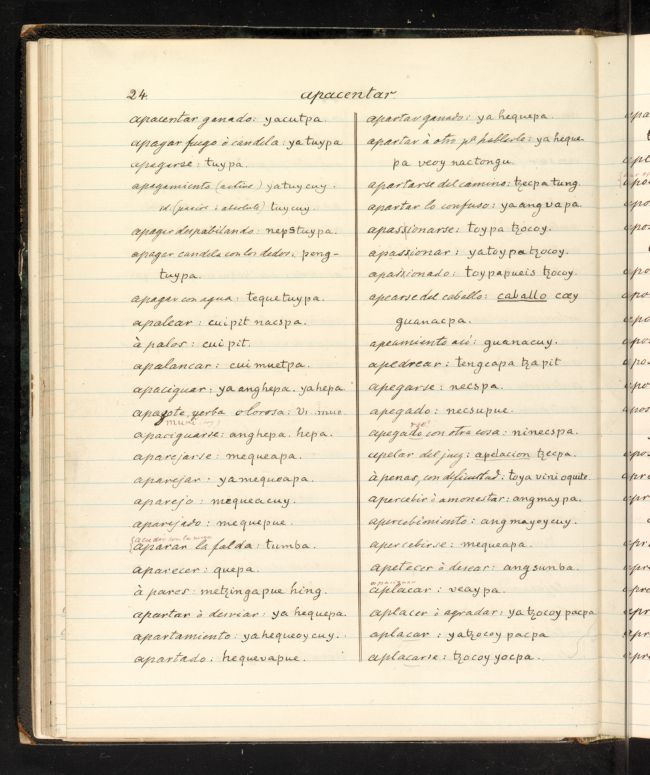 24.
apacentar.
apacentar ganado: yacutpa.
apagar fuego ò candela: yatuypa
apagarse: tuypa.
apagamiento (activo) yatuycuy.
id. tuycuy.
apagar despabilando: nepstuypa.
apagar candela con los dedos. pong-
tuypa.
apagar con agua: teque tuypa.
apalear: cuipit nacspa.
à palos: cuipit.
apalancar: cuimuetpa.
apaciguar: yaanghepa. yahepa.
apazote, yerba olorosa:
apaciguarse: anghepa. hepa.
aparejarse: mequeapa.
aparejar: yamequeapa.
aparejo: mequeacuy.
aparejado: mequepue.
aparar la falda: tumba.
aparecer: quepa.
à pares: metzingapue hing.
apartar ò desviar: yahequepa.
apartamiento: yahequeoycuy.
apartado: hequevapue.
apartar ganado: yahequepa.
apartar à otro pa hablarlo: yaheque-
pa veoy nactongu.
apartarse del camino: tzecpa tung.
apartar lo confuso: yaangvapa.
apassionarse: toypa tzocoy.
apassionar: yatoypa tzocoy.
apassionado: toypapueis tzocoy.
apearse del caballo: caballo cœy
guanacpa.
apeamiento asi: guanacuy.
apedrear: tengcapa tzapit
apegarse: necspa.
apegado: necsupue.
apegado con otra cosa: ninecspa.
apelar del juez: apelacion tzecpa.
à penas, con dificultad: toya vini oquite.
apercebir ò amonestar: angmaypa.
apercebimiento: angmayoycuy.
apercebirse: mequeapa.
apetecer ò desear: angsunba.
aplacar: veaypa.
aplacer ò agradar: yatzocoy pacpa
aplacar: yatzocoy pacpa
aplacarse: tzocoy yocpa.